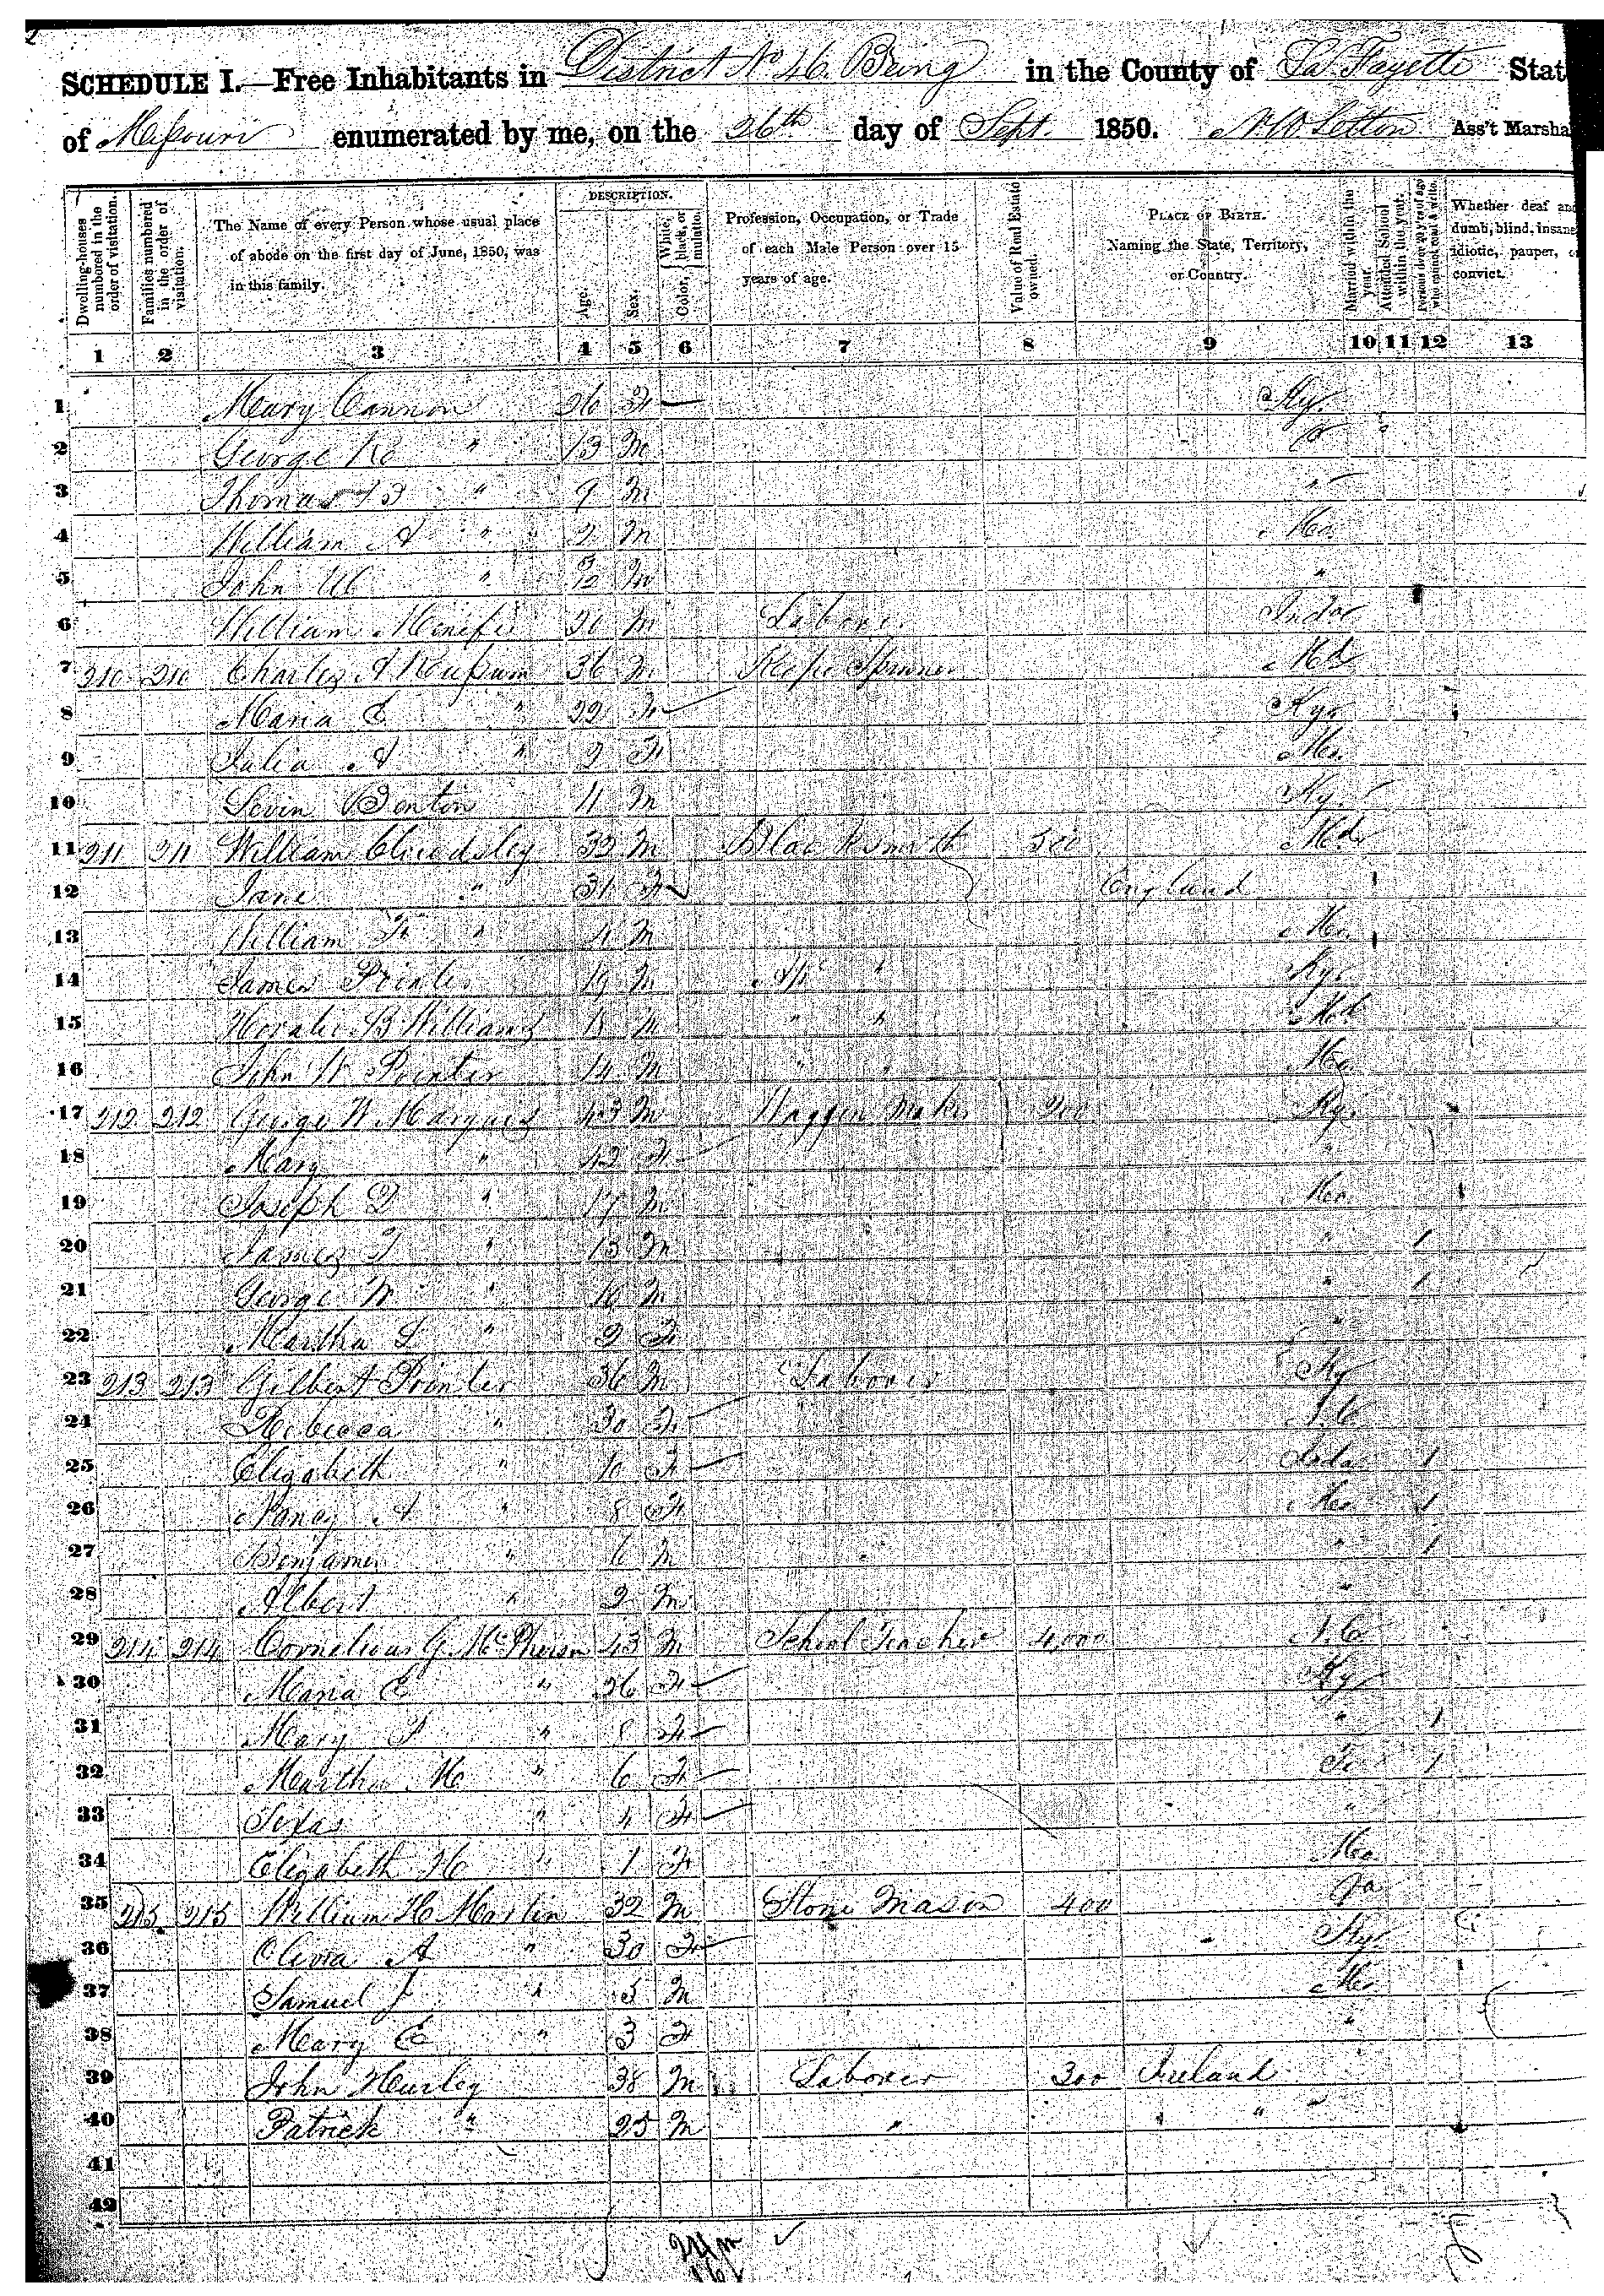 SCHEDULE I.—Free Inhabitants in District No 46 Being in the County of La Fayette Stat
of Missouri enumerated by me, on the 26th day of Sept. 1850. Ass't Marsha
Dwelling-houses numbered in the order of visitation.
Families numbered in the order of visitation.
The Name of every Person whose usual place of abode on the first day of June, 1850, was in this family.
DESCRIPTION.
Age.
Sex.
Color, White, black, or mulatto.
Profession, Occupation, or Trade of each Male Person over 15 years of age.
Value of Real Estate owned.
PLACE OF BIRTH. Naming the State, Territory, or Country.
Married within the year.
Attended School within the year.
Persons over 20 y'rs of age who cannot read & write.
Whether deaf and dumb, blind, insane, idiotic, pauper, or convict.
1 2 3 4 5 6 7 8 9 10 11 12 13
1 Mary Cannon 26 F Ky.
2 George " 13 M
3 Thomas " 9 M "
4 William A " 2 M Mo.
5 John " M "
6 William Minifie M Laborer Inda
7 210 210 Charles A 36 M Rope Spinner Md
8 Maria E " 22 F Ky.
9 Julia A " 2 F Mo.
10 Levin Benton 11 M Ky.
11 211 211 William 32 M Blacksmith 500 Md
12 Jane " 31 F England
13 William F " 4 M Mo.
14 James Pointer 19 M " Ky.
15 Horatio B Williams 18 M " " Md
16 John W Pointer 14 M " " Mo
17 212 212 George W Marquis 43 M Waggon Maker 200 Ky.
18 Mary " 42 F "
19 Joseph D " 17 M Mo.
20 James T " 13 M " 1
21 George W " 10 M " 1
22 Martha " 2 F "
23 213 213 Gilbert Pointer 36 M Laborer Ky
24 Rebecca " 30 F
25 Elizabeth " 10 F Inda 1
26 Nancy A " 8 F Mo 1
27 Benjamin " 6 M " 1
28 Albert " 2 M "
29 214 214 Cornelious G. McPherson 43 M School Teacher 4,000 N.C
30 Maria E " 26 F Ky
31 Mary " 8 F " 1
32 Martha M " 6 F Te 1
33 Texas " 4 F "
34 Elizabeth H " 1 F Mo.
35 215 215 William H Martin 32 M Stone Mason 400
36 Olivia A " 30 F Ky.
37 Samuel J " 5 M Mo.
38 Mary E " 3 F "
39 John Hurley 38 M Laborer 300 Ireland
40 Patrick " 25 M " "
41
42